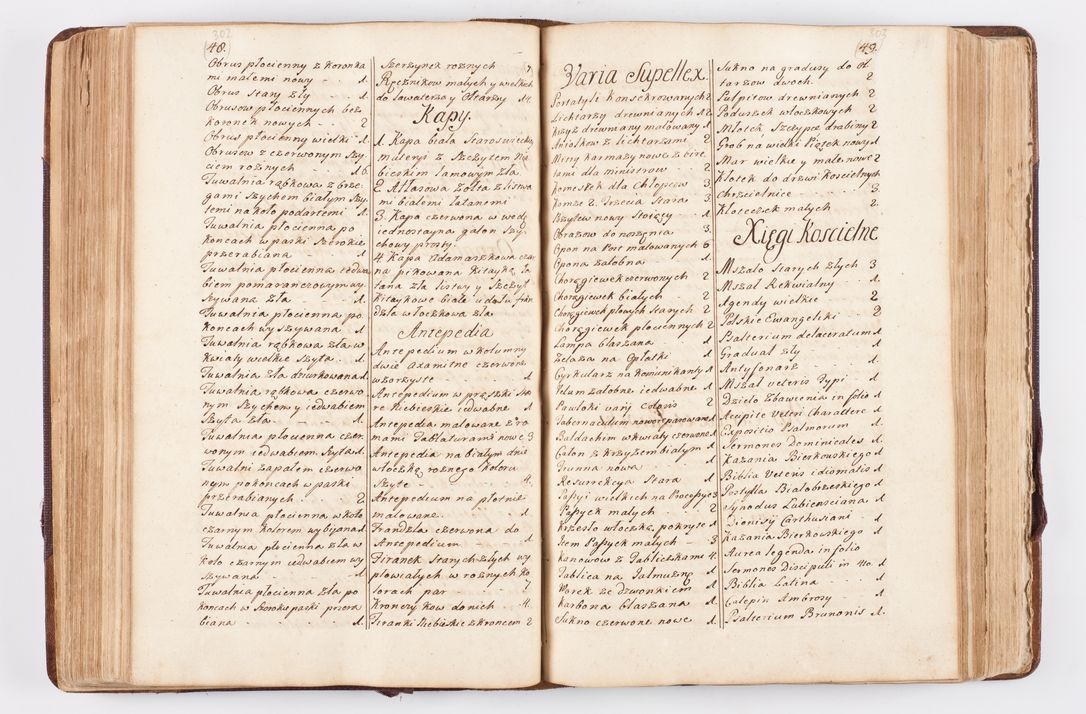 302
48.
Obrus płocienny z koronka
mi małemi nowy - 1.
Obrus stary zły - 1.
Obrusow płociennych bez
koronek nowych - 2
Obrus płocienny wielki 1.
Obrusow z czerwonym szy
ciem roznych - 16.
Tuwalnia rąbkowa z brze
gami szychem białym szy
temi na koło podartemi 1.
Tuwalnia płocienna po
koncach w paski szerokie
przerabiana 1.
Tuwalnia płocienna iedwa
biem pomaranczowym wy
szywana zła 1.
Tuwalnia płocienna po
koncach wyszywana 1.
Tuwalnia rąbkowa zła w
kwiaty wielkie szyta 1.
Tuwalnia zła dziurkowana 1.
Tuwalnia rąbkowa czerwo
nym szychem y iedwabiem
szyta zła 1.
Tuwalnia płocienna czer
wonym iedwabiem szyta 1.
Tuwalni zapałem czerwo
nym po koncach w paski
przerabianych 2
Tuwalnia płocienna w koło
czarnym kolorem wybijana 1
Tuwalnia płocienna zła w
koło czarnym iedwabiem wy
szywana 1.
Tuwalnia płocienna zła po
koncach w szerokie paski przera
biana 1.
Szerzynek roznych 7
Ręcznikow małych y wielkich
do lawaterza y Ołtarzy 14.
Kapy.
1. Kapa biała staroswiecka
materyi z szczytem Nie
bieskim lamowym zła
2. Atłasowa zołta z listwa
mi białemi łatanemi
3. Kapa czerwona w wodę
iednostayna galon szy
chowy prosty
4. Kapa Adamaszkowa czar
na pikowana kitayką ła
tana zła listwy y szczyt
kitaykowe białe u dołu fran
dzla włoczkowa zła
Antepedia
Antepedium w kolumny
dwie Axamitne czerwone
wzorzyste 1.
Antepedium w prązki sta
re Niebieskie iedwabne 1.
Antepedia malowane z ra
mami Tablaturami nowe 3
Antepedia na białym dnie
włoczką roznego koloru
szyte 4.
Antepedium na płotnie
malowane 1.
Frandzla czerwona do
Antepedium 1.
Firanek starych złych wy
płowiałych w roznych ko
lorach par 7
Kroneczykow do nich 4.
Firanki Niebieskie z kroncem 2
303
49.
Varia Supellex.
Portatyli konsekrowanych 2
Lichtarzy drewnianych 12
Krzyz drewniany malowany 1
Aniołkow z lichtarzami 2
Mszy karmazynowe z cize
łami dla ministrow 2
Komeszek dla Chłopcow 3.
Komze 2. Trzecia stara 3
Brzytew nowy stoiący 1
Obrazow do noszęnia 3.
Opon na Post malowanych 6
Opona załobna 1.
Chorągiewek czerwonych 2
Chorągiewek białych 2
Chorągiewek płowych starych 2
Chorągiewek płociennych 2
Lampa blaszana 1.
Zelaza na Opłatki 1.
Cyrkularz na komunikanty 1
Velum załobne iedwabne 1.
Pawłoki varij coloris 2
Tabernaculum nowo reparowane 1
Baldachim w kwiaty czerwone 1.
Całon z krzyzem białym 1
Trunna nowa 1.
Resurrekcya stara 1
Passyi wielkich na Processye 3
Passyek małych 2
Krzesło włoczką pokryte 1.
Item Passyek małych 3
Kanonow z Tabliczkami 4.
Tablica na Jałmużnę 1
Worek ze dzwonkiem 1
Karbona blaszana 1.
Sukno czerwone nowe 1.
Sukno na gradusy do Oł
tarzow dwoch 2
Pulpitow drewnianych 2
Poduszek włoczkowych 2
Młotek, szczypce drabiny 2
Grob na wielki Piątek nowy 1
Mar wielkie y małe nowe 2
Kłotek do drzwi Koscielnych
Chrzcielnice 3.
Kłoteczek małych 2
Xięgi Koscielne
Mszało starych złych 3
Mszal Rekwialny 1.
Agendy wielkie 2
Polskie Ewangeliki 2
Psalterium delaceratum 1
Graduał zły 1.
Antyfonarz 1.
Mszał veteris Typi 1.
Dzieło Zbawienia in folio 1
Acupite veteri Charattere 1
Expositio Psalmorum 1.
Sermones Dominicales 1.
Kazania Bierkowskiego 1
Biblia Veteris idiomatis 1
Postylla Białobrzeskiego 1
Synodus Lubienosciana 1.
Dionisy Carthusiani 1
Kazania Bierkowskiego 1
Aurea legenda in folio 1
Sermones Discipuli in 4to. 1
Biblia Latina 1.
Calepin Ambrosy 1.
Psalterium Brunonis 1.